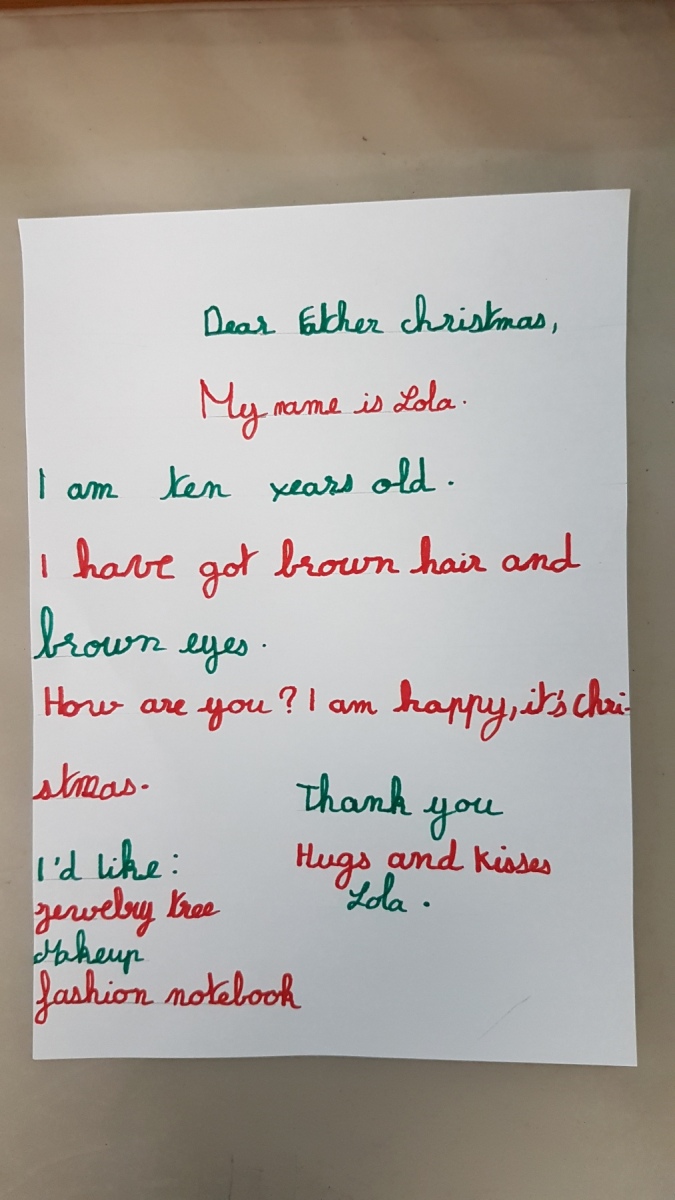 Dear Father christmas,
My name is Lola.
I am ten years old.
I have got brown hair and
brown eyes.
How are you? I am happy, it's chri-
stmas.
Thank you
I'd like:
Hugs and kisses
jewelry tree
Lola.
Makeup
fashion notebook